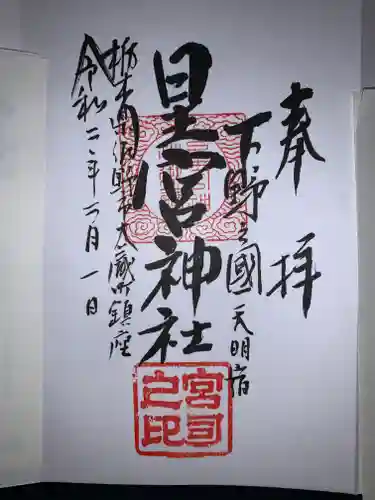 奉拝
下野之國 天明宿
星宮神社
宮司之印
栃木県佐野市大蔵町鎮座
令和二年六月一日